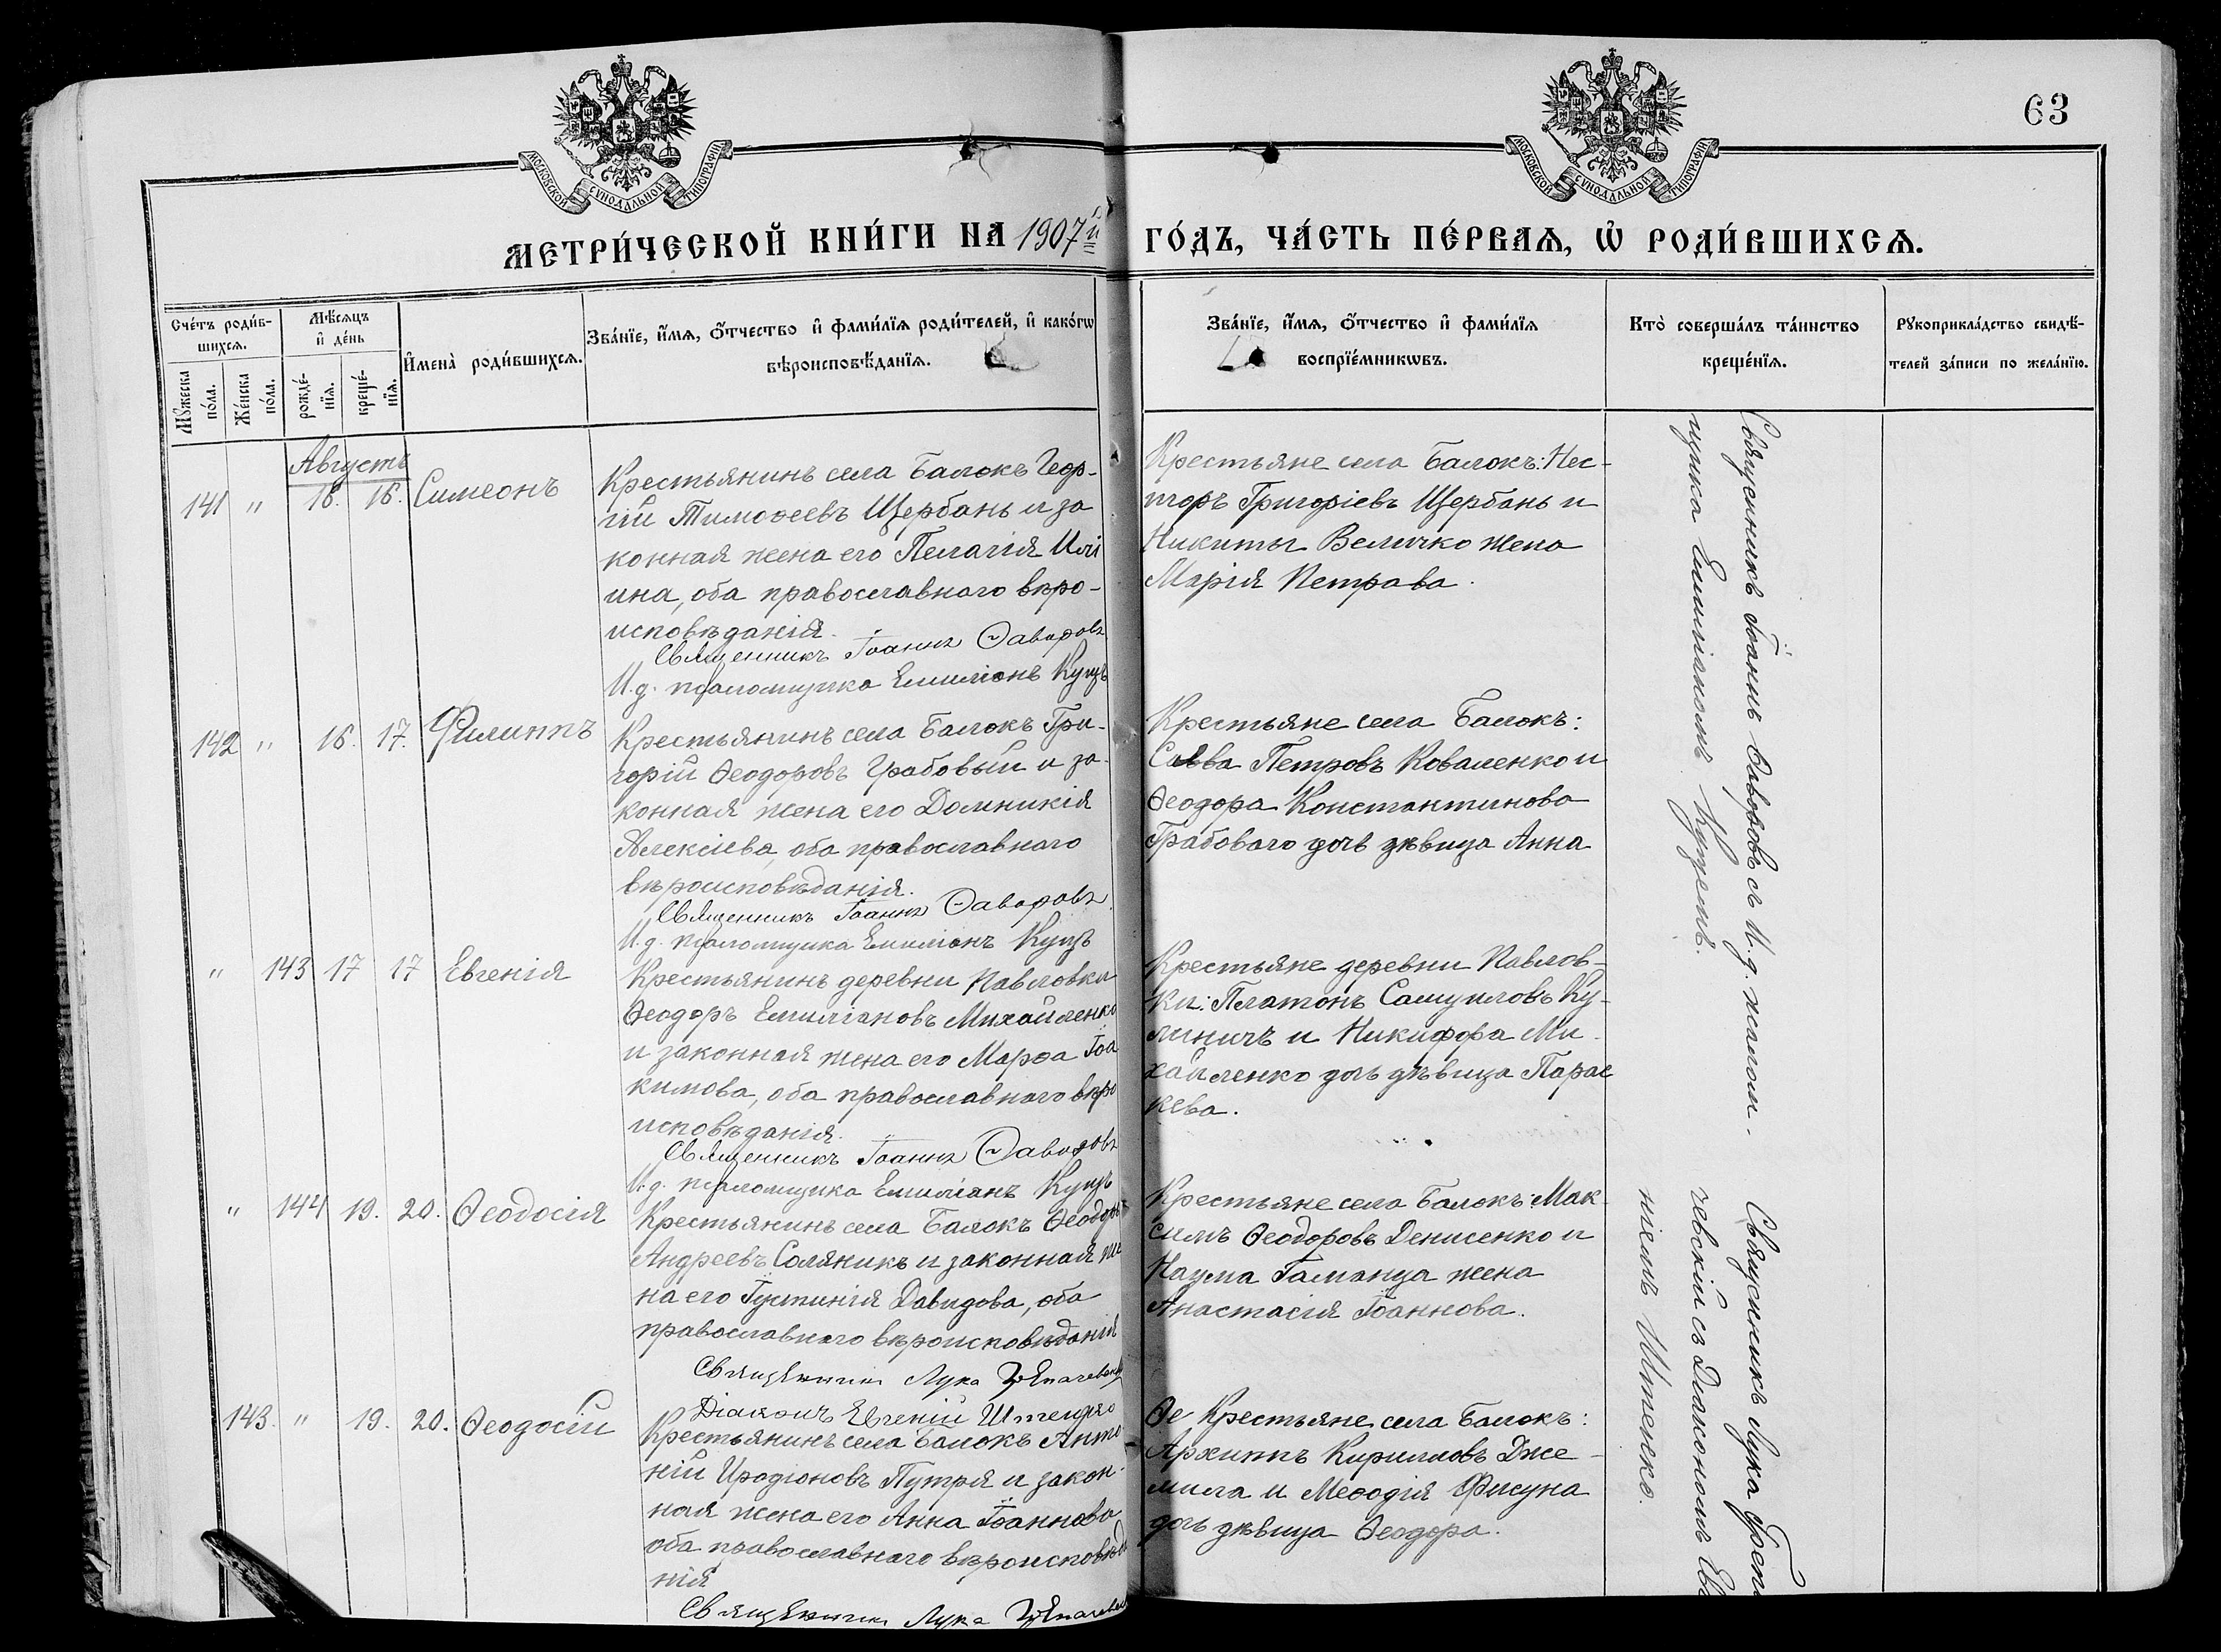 63
МОСКОВСКОЙ СѴНОДАЛЬНОЙ ТИПОГРАФІИ
МОСКОВСКОЙ СѴНОДАЛЬНОЙ ТИПОГРАФІИ
МЕТРИ́ЧЕСКОЙ КНИ́ГИ НА 1907й ГО́ДЪ, ЧА́СТЬ ПЕ́РВАѦ, Ѡ҆ РОДИ́ВШИХСѦ.
Сче́тъ роди́в-
шихсѧ.
Мꙋжеска по́ла.
Же́нска по́ла.
Мѣ́сѧцъ и҆ де́нь
рожде́-
нїѧ.
креще́-
нїѧ.
И҆мена̀ роди́вшихсѧ.
Зва́нїе, и҆́мѧ, ѻ҆́тчество и҆ фами́лїѧ роди́телей, и҆ како́гѡ
вѣроисповѣ́данїѧ.
Зва́нїе, и҆́мѧ, ѻ҆́тчество и҆ фами́лїѧ
воспрїе́мникѡвъ.
Кто̀ соверша́лъ та́инство
креще́нїѧ.
Рꙋкоприкла́дство свидѣ́-
телей за́писи по жела́нїю.
Августъ
141 " 16. 16. Симеонъ
Крестьянинъ села Балокъ Геор-
гій Тимоѳеевъ Щербань и за
конная жена его Пелагія Илі
ина, оба православнаго вѣро-
исповѣданія.
Священникъ Іоаннъ Ѳаворовъ
И.д. псаломщика Емиліонъ Куцъ
Крестьяне села Балокъ: Нес-
торъ Григоріевъ Щербань и
Никиты Величко жена
Марія Петрова.
142 " 16. 17. Филиппъ
Крестьянинъ села Балокъ Гри-
горій Ѳеодоровъ Грабовый и за-
конная жена его Домникія
Алексіева, оба православнаго
вѣроисповѣданія.
Священникъ Іоаннъ Ѳаворовъ
И.д. псаломщика Емиліонъ Куцъ
Крестьяне села Балокъ:
Савва Петровъ Коваленко и
Ѳеодора Константинова
Грабоваго дочь дѣвица Анна
" 143 17 17 Евгенія
Крестьянинъ деревни Павловки
Ѳеодоръ Емиліановъ Михайленко
и законная жена его Марѳа Іоа
кимова, оба православнаго вѣро
исповѣданія.
Священникъ Іоаннъ Ѳаворовъ
И.д. псаломщика Емиліанъ Куцъ
Крестьяне деревни Павлов-
ки: Платонъ Самуиловъ Ку-
линичъ и Никифора Ми-
хайленко дочь дѣвица Парас
кева.
" 144 19. 20. Ѳеодосія
Крестьянинъ села Балокъ Ѳеодоръ
Андреевъ Соляникъ и законная же
на его Іустинія Давидова, оба
православнаго вѣроисповѣданія
Священникъ Лука
Діаконъ Евгеній Штенко
Крестьяне села Балокъ: Мак-
симъ Ѳеодоровъ Денисенко и
Наума Гаманца жена
Анастасія Іоаннова.
143. " 19. 20. Ѳеодосій
Крестьянинъ села Балокъ Анто-
ній Иродіоновъ Путря и закон-
ная жена его Анна Іоаннова
оба православнаго вѣроисповѣда
нія
Священникъ Лука
Ѳе Крестьяне села Балокъ:
Архипъ Кирилловъ Дже-
мила и Меѳодія Фисуна
дочь дѣвица Ѳеодора.
Священникъ Іоаннъ Ѳаворовъ съ И.д. псалом-
щика Емиліаномъ Куцемъ.
Священникъ Лука Грепа
чевскій съ Діакономъ Ев
ніемъ Штенко.